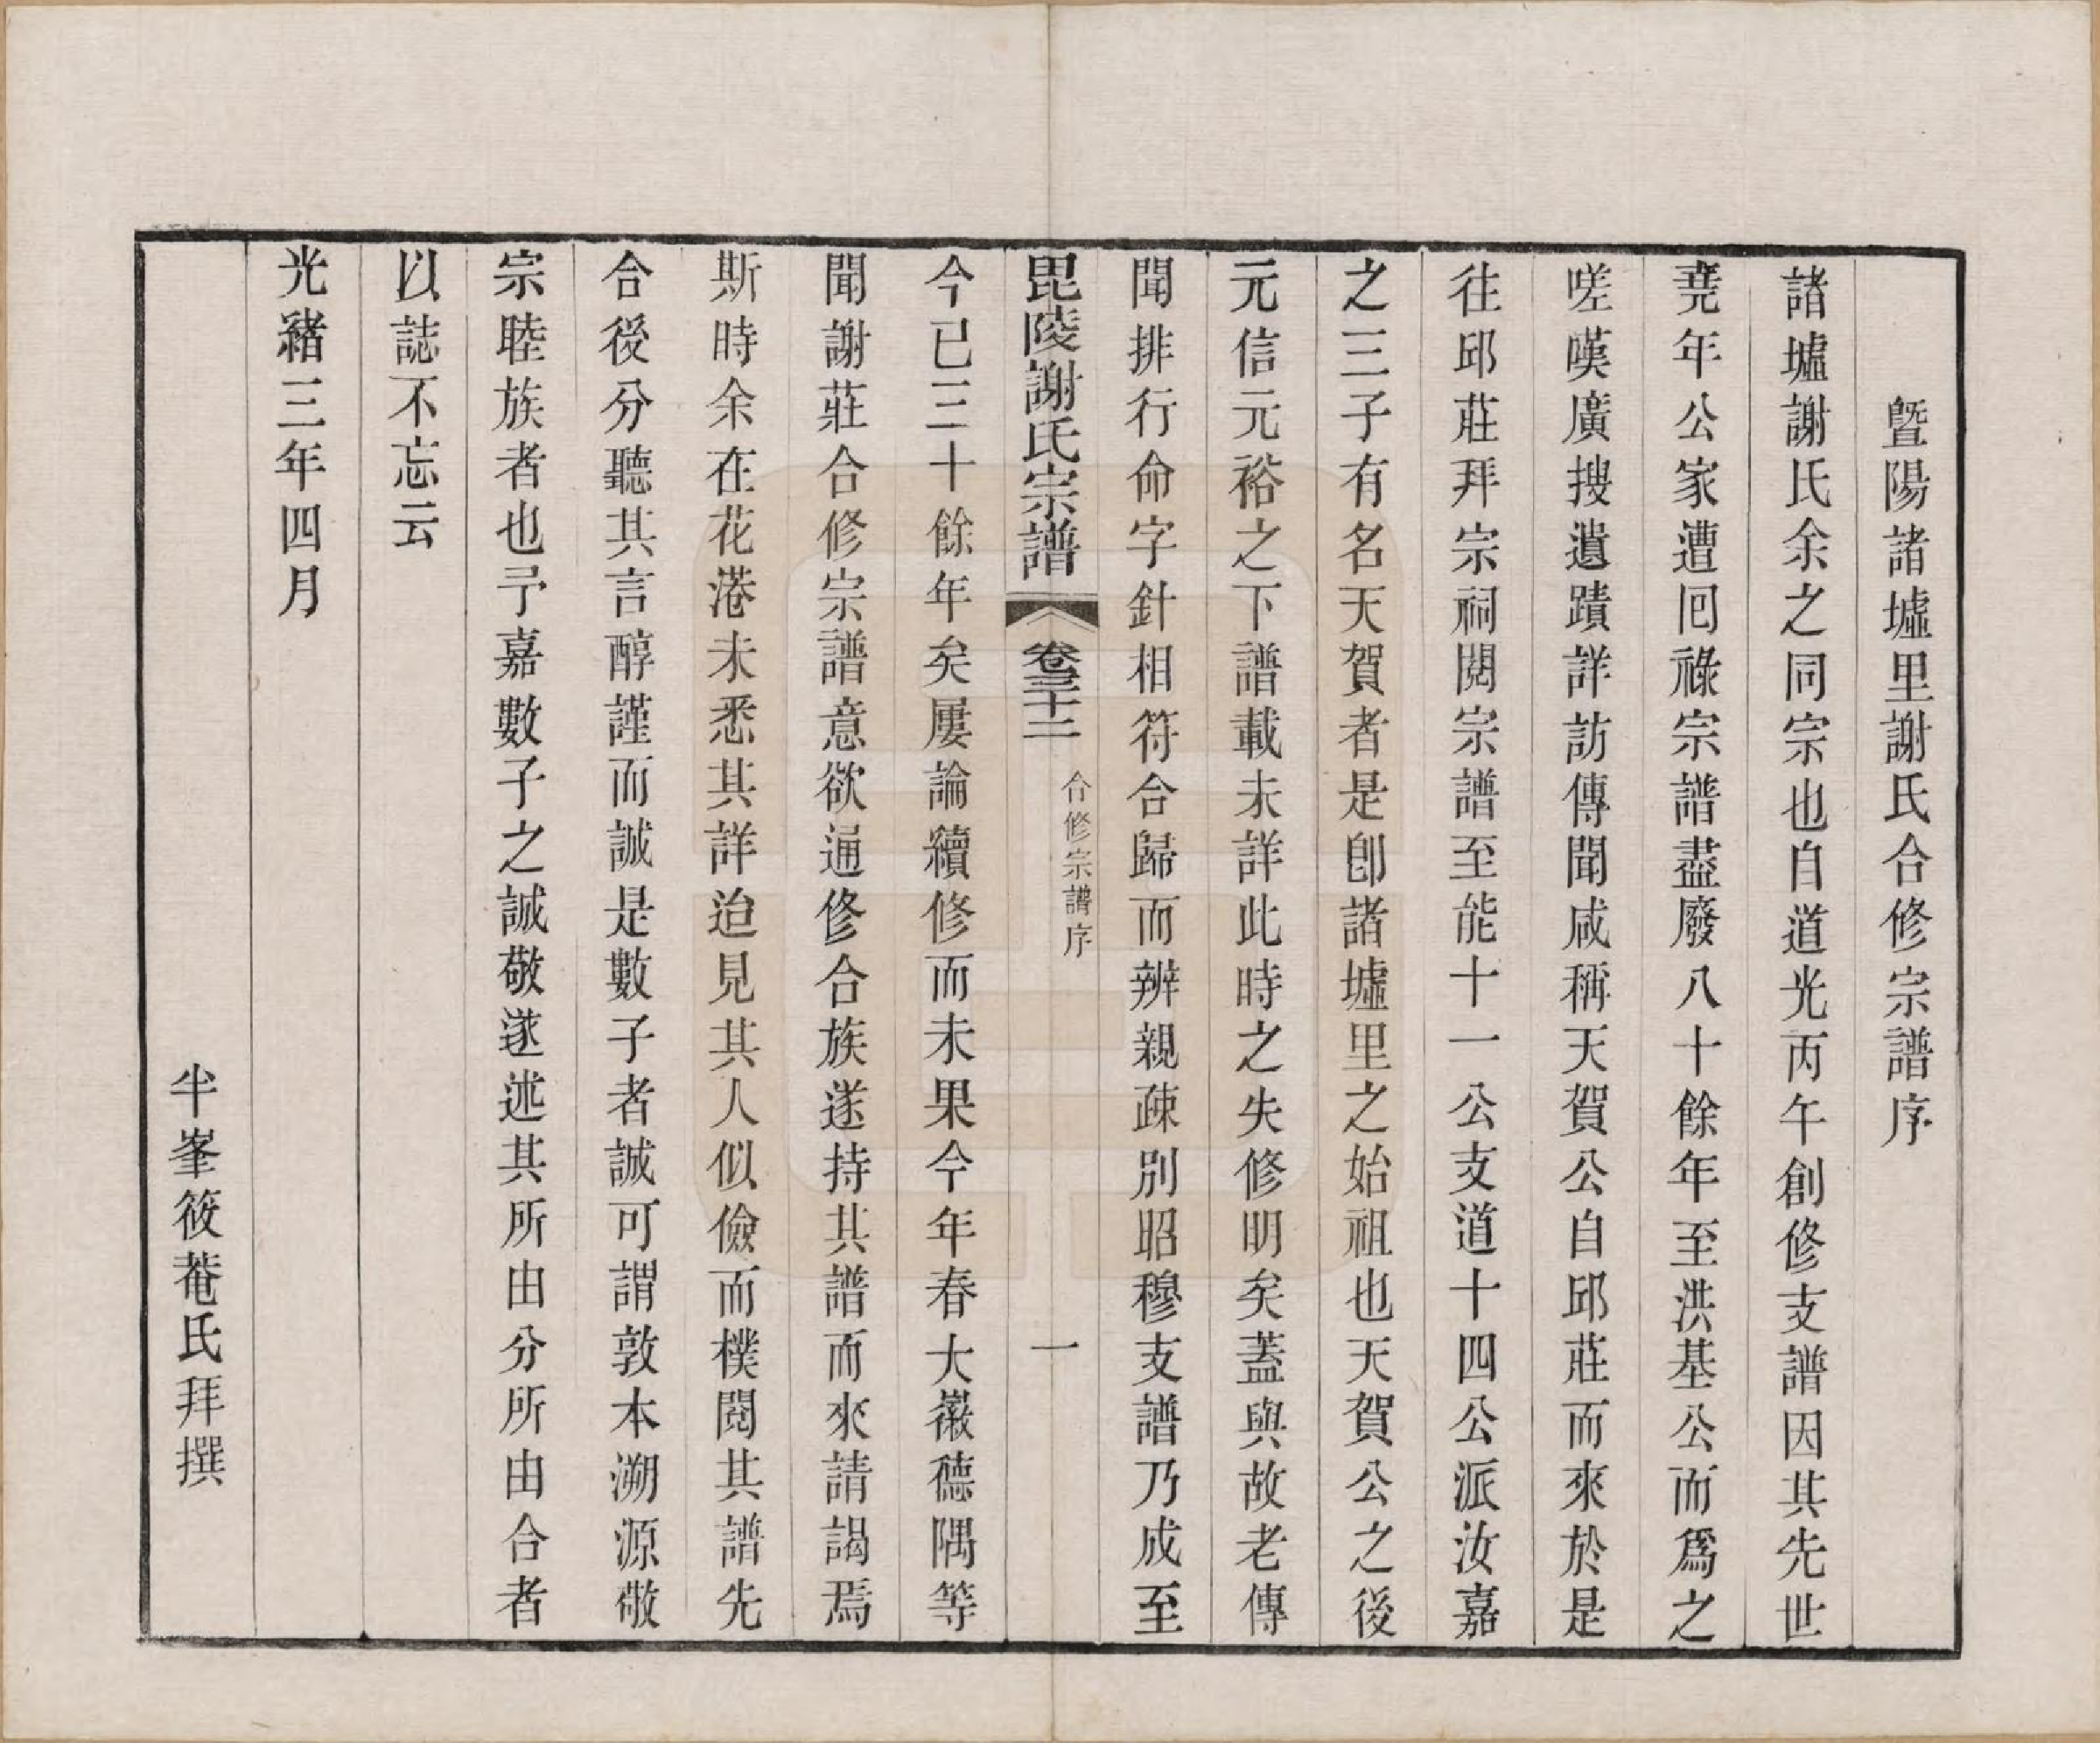 暨陽諸墟里謝氏合修宗譜序
諸墟謝氏余之同宗也自道光丙午創修支譜因其先世
堯年公家遭囘祿宗譜盡廢八十餘年至洪基公而爲之
嗟嘆廣搜遺蹟詳訪傳聞咸稱天賀公自邱莊而來於是
往邱莊拜宗祠閱宗譜至能十一公支道十四公派汝嘉
之三子有名天賀者是卽諸墟里之始祖也天賀公之後
元信元裕之下譜載未詳此時之失修明矣蓋與故老傳
聞排行命字針相符合歸而辨親疎別昭穆支譜乃成至
毘陵謝氏宗譜
卷三十二
合修宗譜序
一
今已三十餘年矣屢論續修而未果今年春大徽德隅等
聞謝莊合修宗譜意欲通修合族遂持其譜而來請謁焉
斯時余在花港未悉其詳迨見其人似儉而樸閱其譜先
合後分聽其言醇謹而誠是數子者誠可謂敦本溯源敬
宗睦族者也予嘉數子之誠敬遂述其所由分所由合者
以誌不忘云
光緒三年四月
半峯筱菴氏拜撰